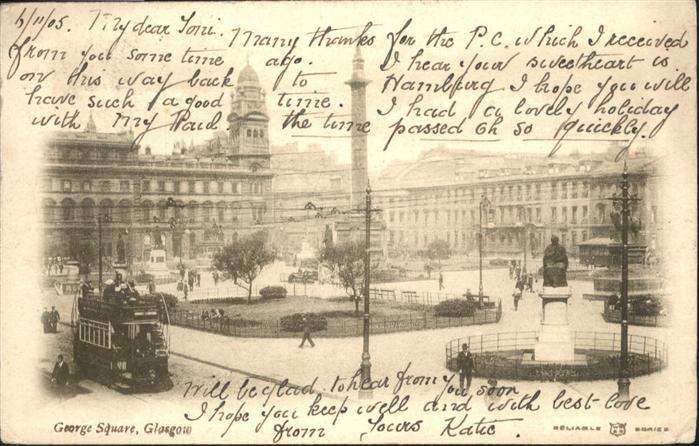 6/11/05. My dear Toni. Many thanks for the P.C. which I received
from you some time ago. I hear your sweetheart is
on his way back to Hamburg I hope you will
have such a good time. I had a lovely holiday
with My Paul the time passed Oh so quickly.
Will be glad to hear from you soon
I hope you keep well and with best love
from Yours Katie.
George Square, Glasgow
RELIABLE SERIES